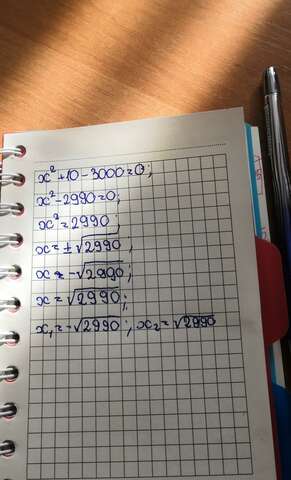 x²+10-3000=0;
x²-2990=0;
x²=2990;
x=±√2990;
x=-√2990;
x=√2990;
x₁=-√2990; x₂=√2990